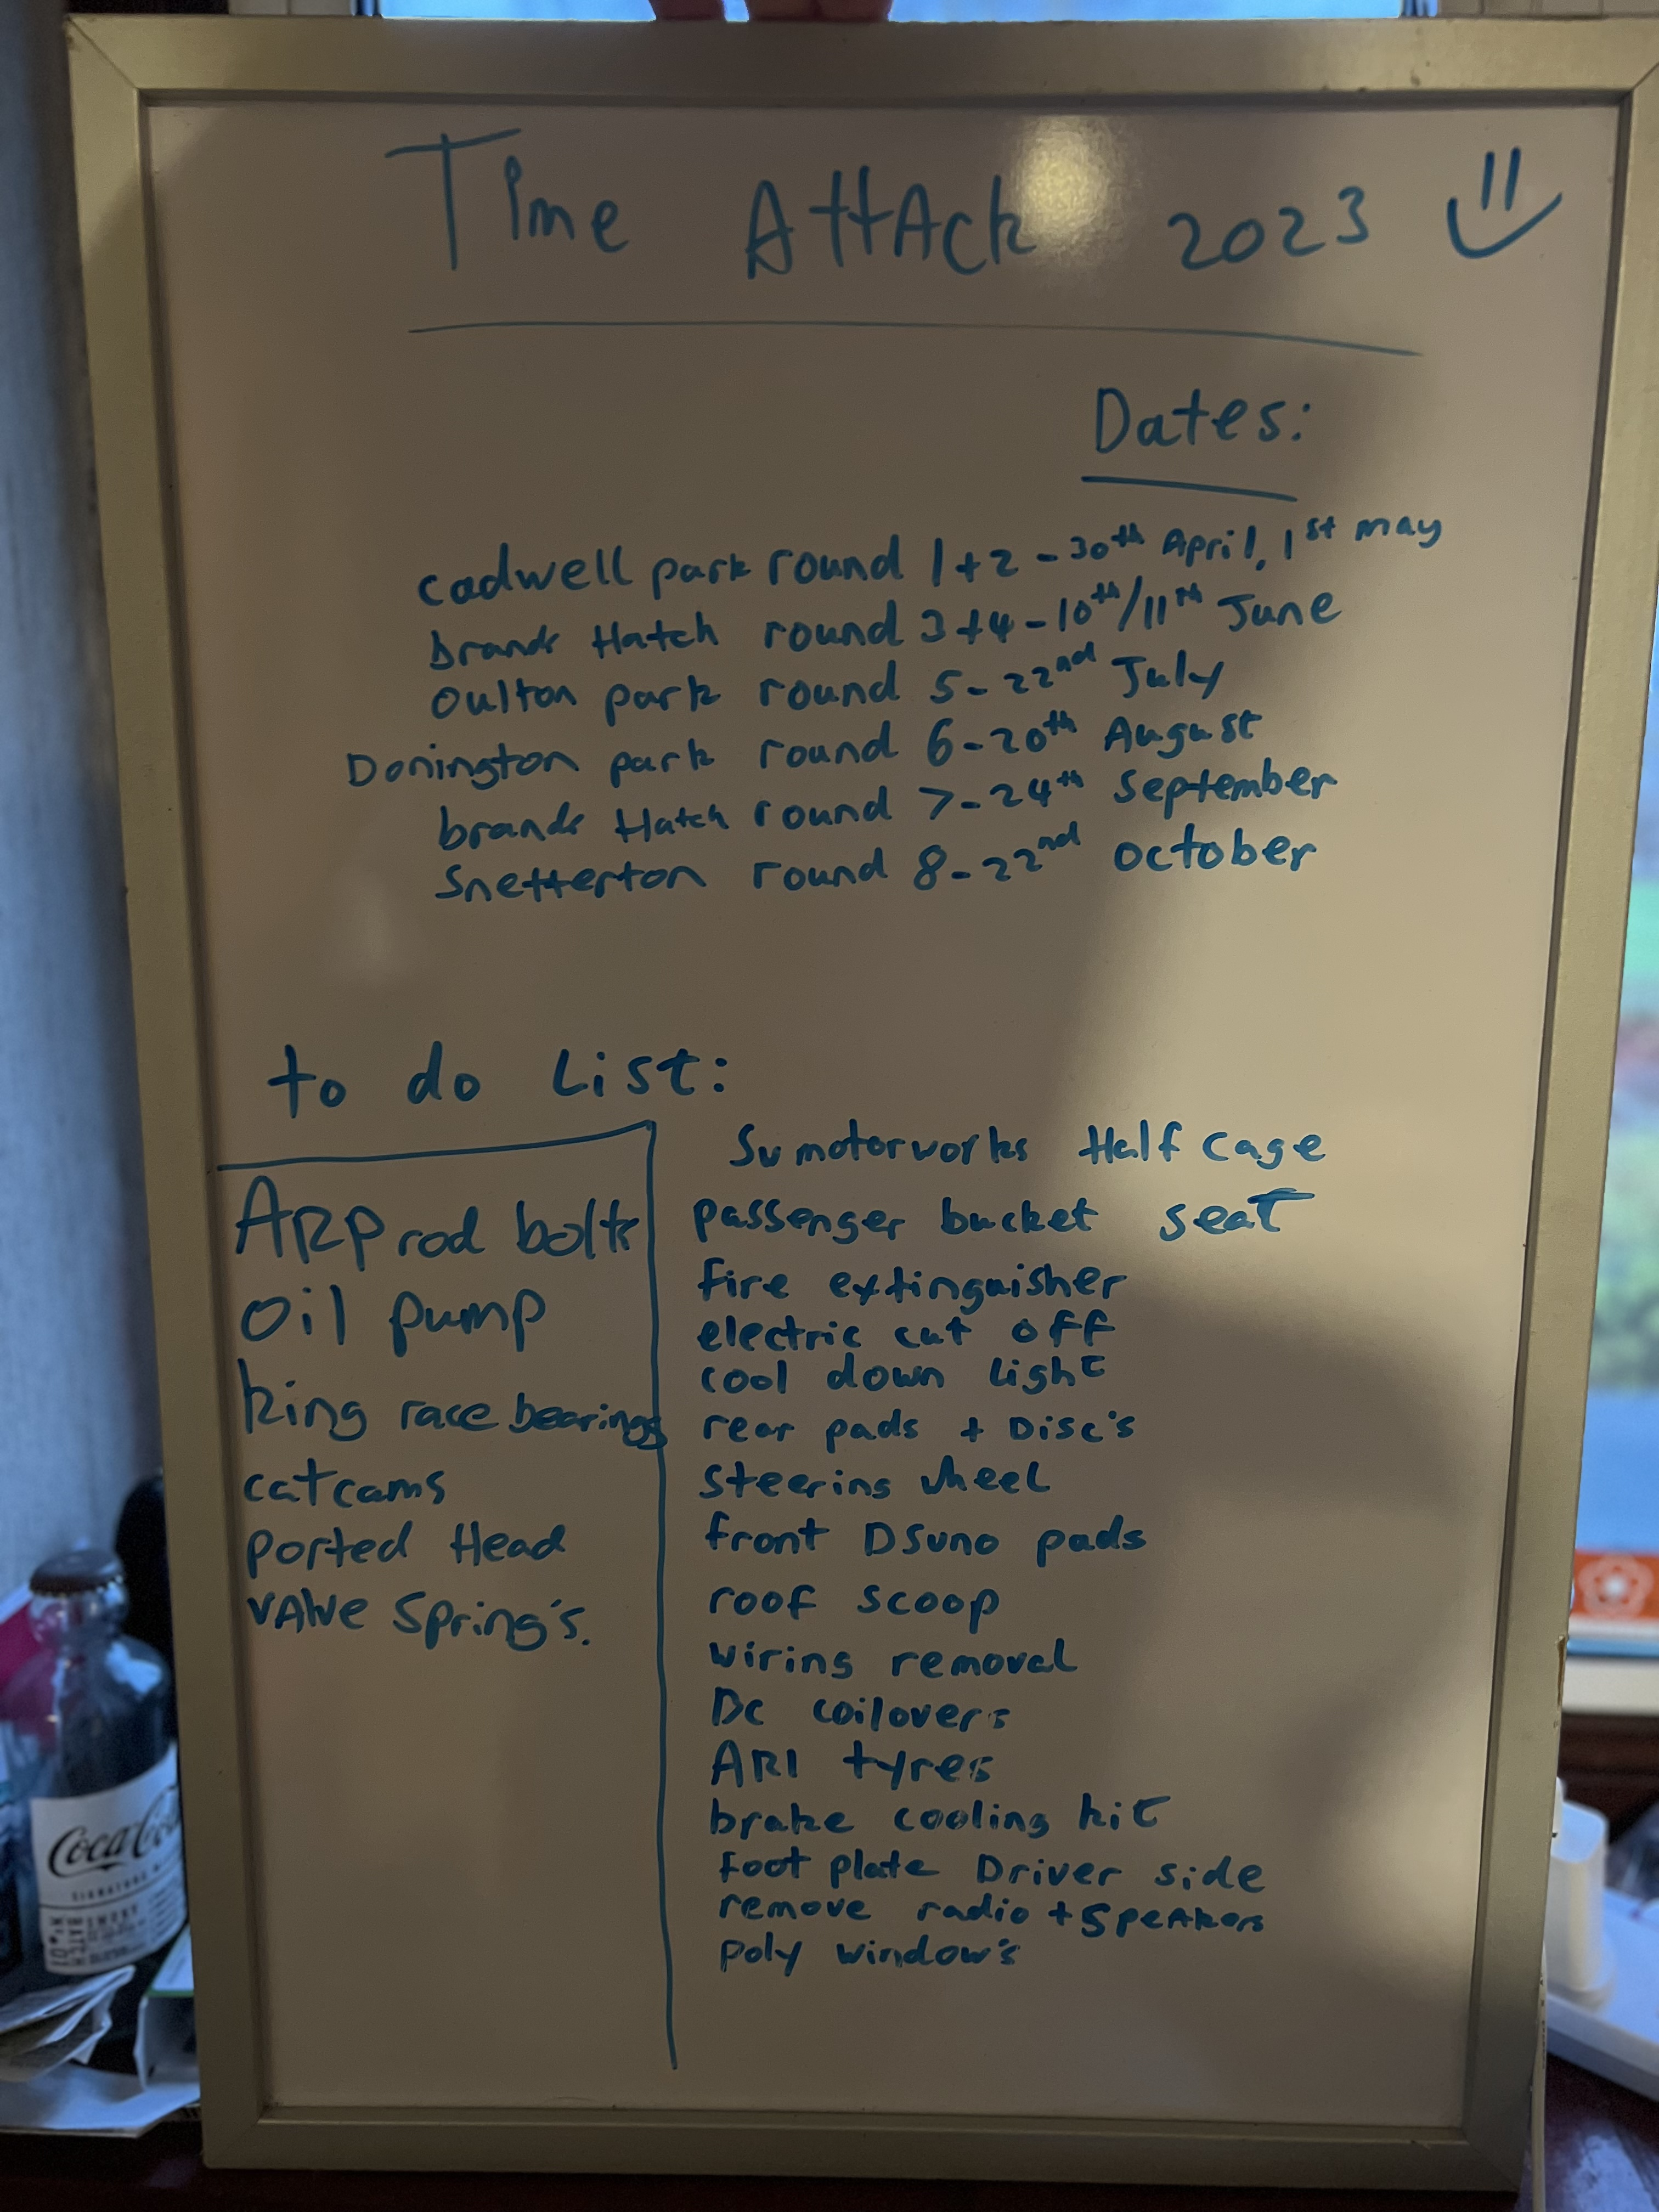 Time Attack 2023
Dates:
cadwell park round 1+2 - 30th April, 1st may
brands Hatch round 3+4 - 10th/11th June
Oulton park round 5 - 22nd July
Donington park round 6 - 20th August
brands Hatch round 7 - 24th September
Snetterton round 8 - 22nd october
to do List:
ARP rod bolts
oil pump
king race bearings
catcams
Ported Head
VAlve Spring's.
Sv motorworks Half cage
passenger bucket seat
fire extinguisher
electric cut off
cool down light
rear pads + Disc's
steering wheel
front DSuno pads
roof scoop
wiring removal
BC coilovers
AR1 tyres
brake cooling kit
foot plate Driver side
remove radio + SpeAkers
poly window's
Coca-Cola
SIGNATURE
SMOKY